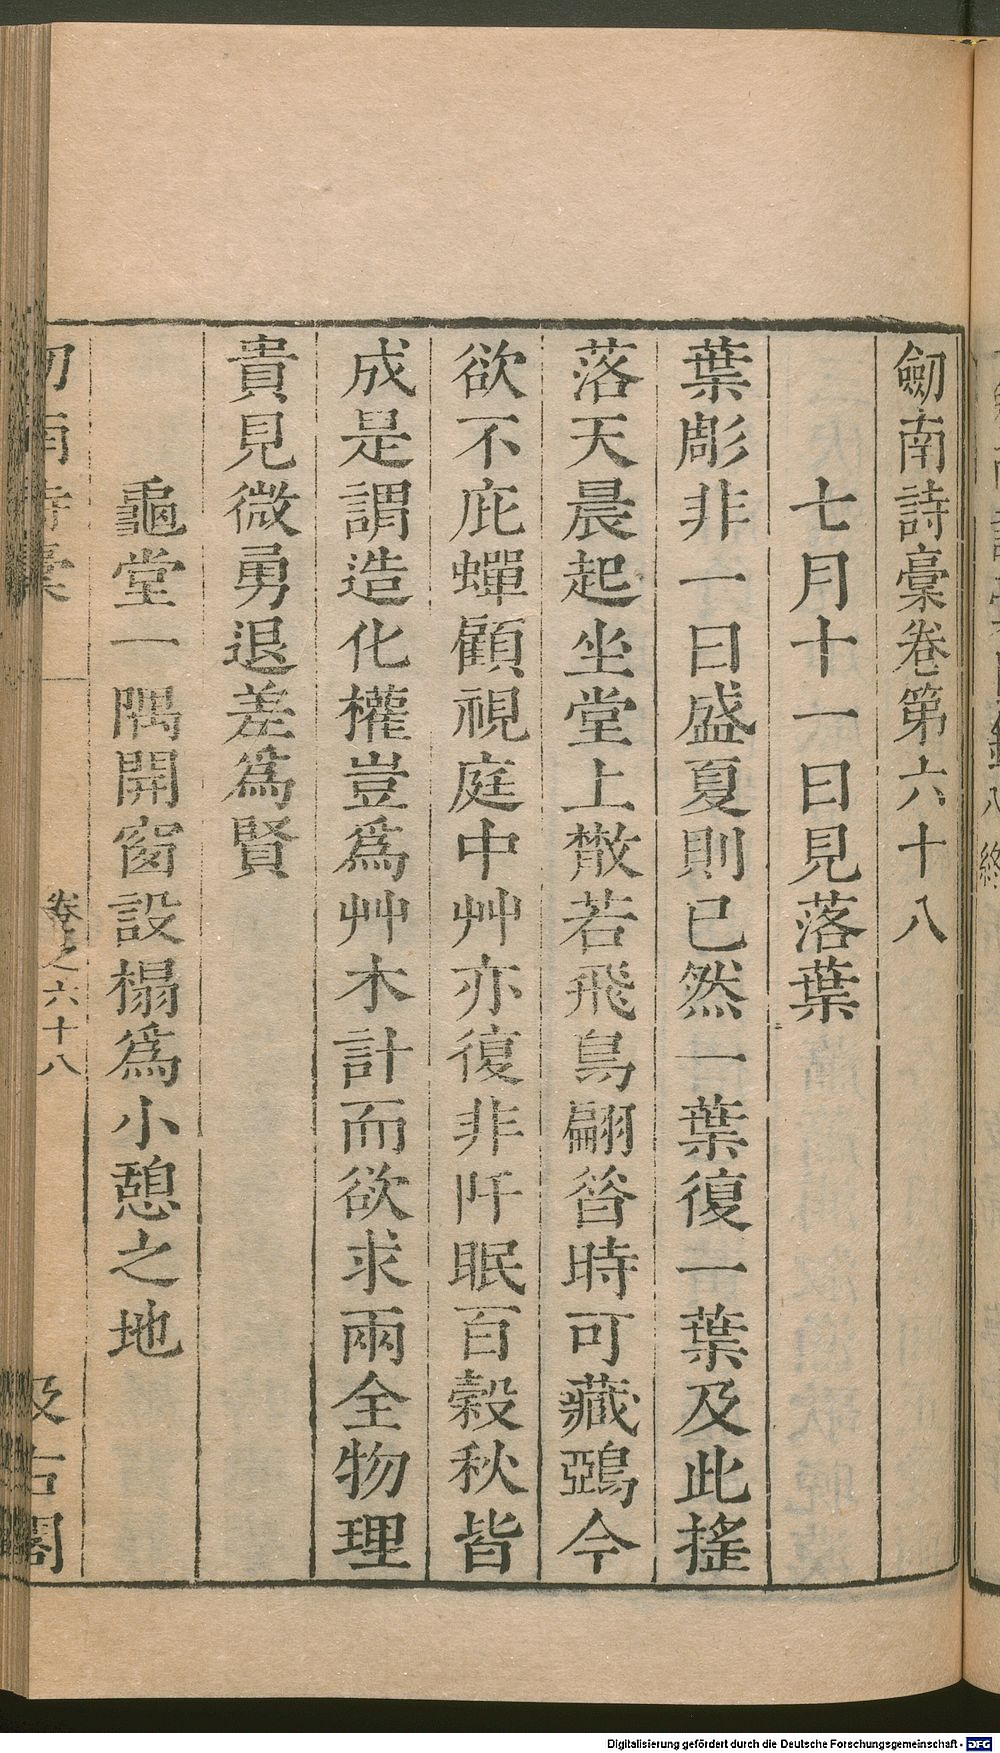 劒南詩稾卷第六十八
七月十一日見落葉
葉彫非一日盛夏則已然一葉復一葉及此搖
落天晨起坐堂上㪚若飛鳥翩昝時可藏鵶今
欲不庇蟬顧視庭中艸亦復非阡眠百穀秋皆
成是謂造化權豈爲艸木計而欲求兩全物理
貴見微勇退差爲賢
龜堂一隅開窗設榻爲小憩之地
卷之六十八
Digitalisierung gefördert durch die Deutsche Forschungsgemeinschaft - DFG